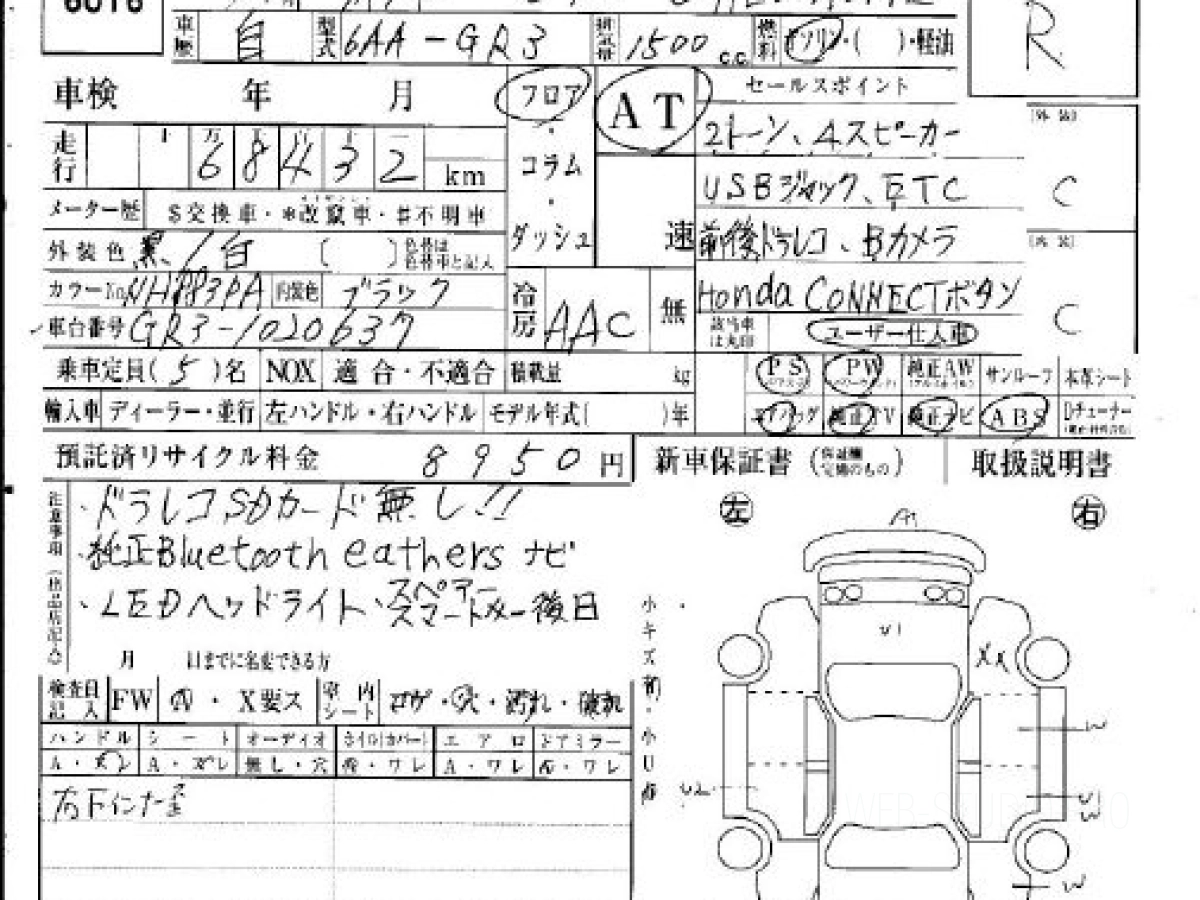 6016
車歴 自 型式 6AA-GR3 排気量 1500 c.c. 燃料 ガソリン・( )・軽油
R
車検 年 月 フロア AT セールスポイント
[外装]
走行 1 万6 千8 百4 十3 一2 km ・コラム・ 2トーン、4スピーカー
USBジャック、ETC C
メーター歴 $交換車・*改竄車・#不明車
外装色 黒/白 ( ) 色替は色替車と記入 ダッシュ 速 前後ドラレコ、Bカメラ [内装]
カラーNo. 内装色 ブラック 冷房 AAC 無 Honda CONNECTボタン
車台番号 GR3-1020637 該当車は丸印 ユーザー仕入車 C
乗車定員(5)名 NOX 適合・不適合 積載量 kg PS PW 純正AW サンルーフ 本革シート
輸入車 ディーラー・並行 左ハンドル・右ハンドル モデル年式( )年 エアバッグ 純正TV 純正ナビ ABS Dチューナー
預託済リサイクル料金 8950円 新車保証書 (保証欄完備のもの) 取扱説明書
注意事項
・ドラレコSDカード無し!!
・純正Bluetooth eathers ナビ
・LEDヘッドライト・スペアースマートキー後日
月 日までに名変できる方
左 右
A1
小キズ
U1
XX
W
U2
U1
W
W
検査員記入 FW ・X要ス 車内シート コゲ・穴・汚れ・破れ
ハンドル シート オーディオ ネイル(カバー) エアロ ドアミラー
A・ズレ A・ズレ 無し・穴 ・ワレ A・ワレ ・ワレ
右下インナー